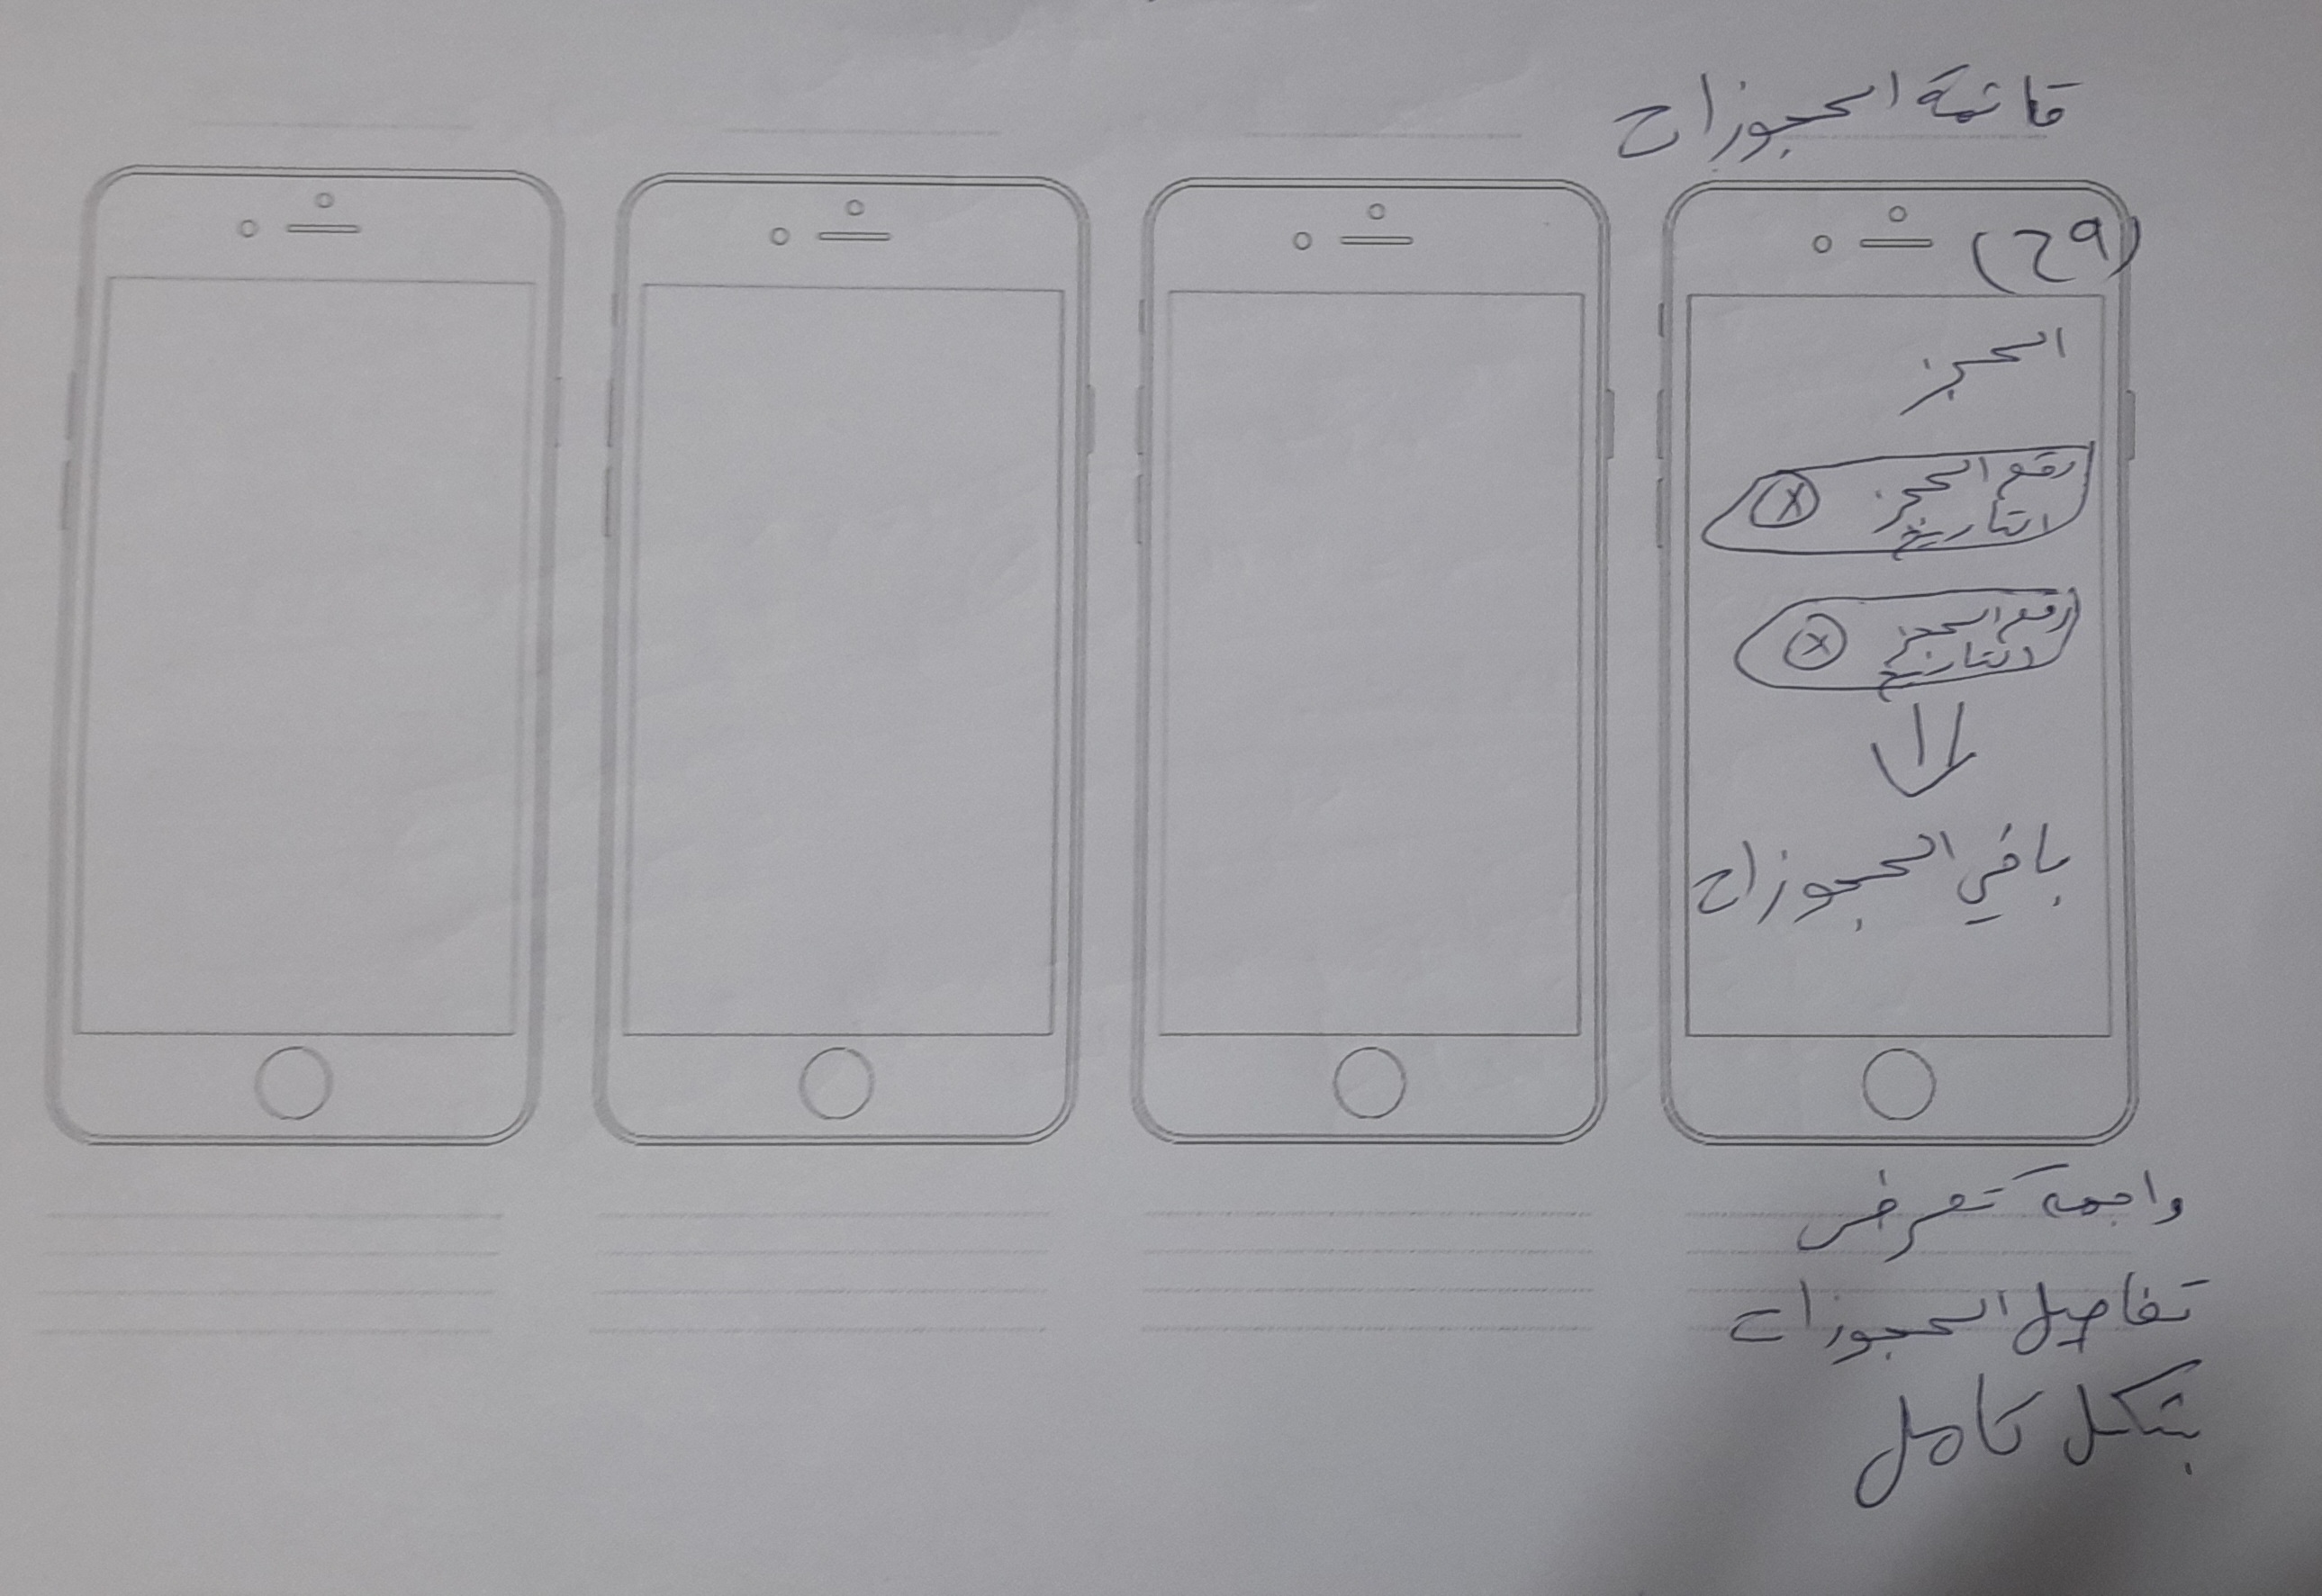 قائمة الحجوزات
(٢٩)
الحجز
رقم الحجز
التاريخ
رقم الحجز
التاريخ
باقي الحجوزات
واجهة تعرض
تفاصيل الحجوزات
بشكل كامل